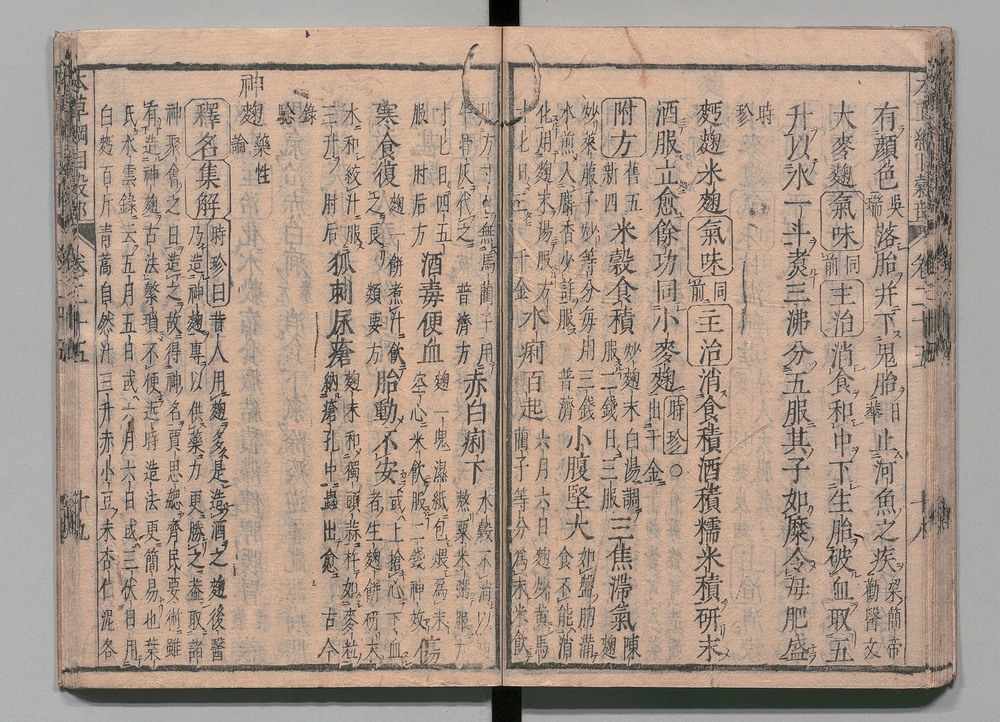 有顔色吳瑞落胎并下鬼胎日華止河魚之疾梁簡帝勸醫文
大麥麴氣味同前主治消食和中下生胎破血取五
升以水一斗煮三沸分五服其子如糜令母肥盛
時珍
麪麴米麴氣味同前主治消食積酒積糯米積研末
酒服立愈餘功同小麥麴時珍○出千金
附方舊五新四米穀食積炒麴末白湯調服二錢日三服三焦滯氣陳麴
炒萊服子炒等分每用三錢小腹堅大如盤胸滿
水煎入麝香少許服普濟食不能消
化用麴末湯服方寸匕日三千金水痢百起六月六日麴炒黄馬
藺子等分爲末米飲
服方寸匕無馬藺子用
牛骨灰代之普濟方赤白痢下水穀不消以
麴熬粟米粥服方
寸匕日四五
服肘后方酒毒便血麴一塊濕紙包煨爲末
空心米飲服二錢神效傷
寒食復麴一餅煮汁飲
之良類要方胎動不安或上搶心下血
者生麴餅研末
水和絞汁服
三升肘后狐刺尿瘡麴末和獨頭蒜杵如麥粒
納瘡孔中蟲出愈古今
録驗
神麴藥性論
釋名集解時珍曰昔人用麴多是造酒之麴後醫
乃造神麴專以供藥力更勝之蓋取諸
神聚會之日造之故得神名賈思勰齊民要術雖
有造神麴古法繁瑣不便近時造法更簡易也葉
氏水雲錄云五月五日或六月六日或三伏日用
白麴百斤青蒿自然汁三升赤小豆末杏仁泥各
本草綱目穀部
卷二十五